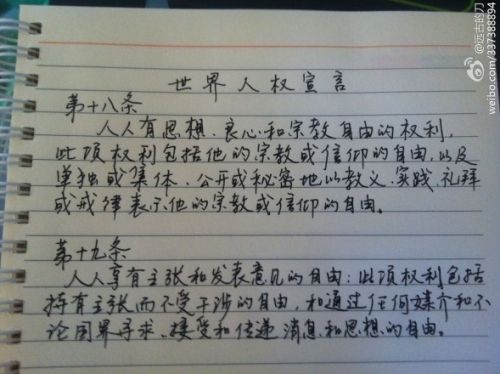 @远古的刀
weibo.com/337388894
世界人权宣言
第十八条
人人有思想、良心和宗教自由的权利,
此项权利包括他的宗教或信仰的自由,以及
单独或集体、公开或秘密地以教义、实践、礼拜
或戒律表示他的宗教或信仰的自由。
第十九条
人人享有主张和发表意见的自由;此项权利包括
持有主张而不受干涉的自由,和通过任何媒介和不
论国界寻求、接受和传递消息和思想的自由。